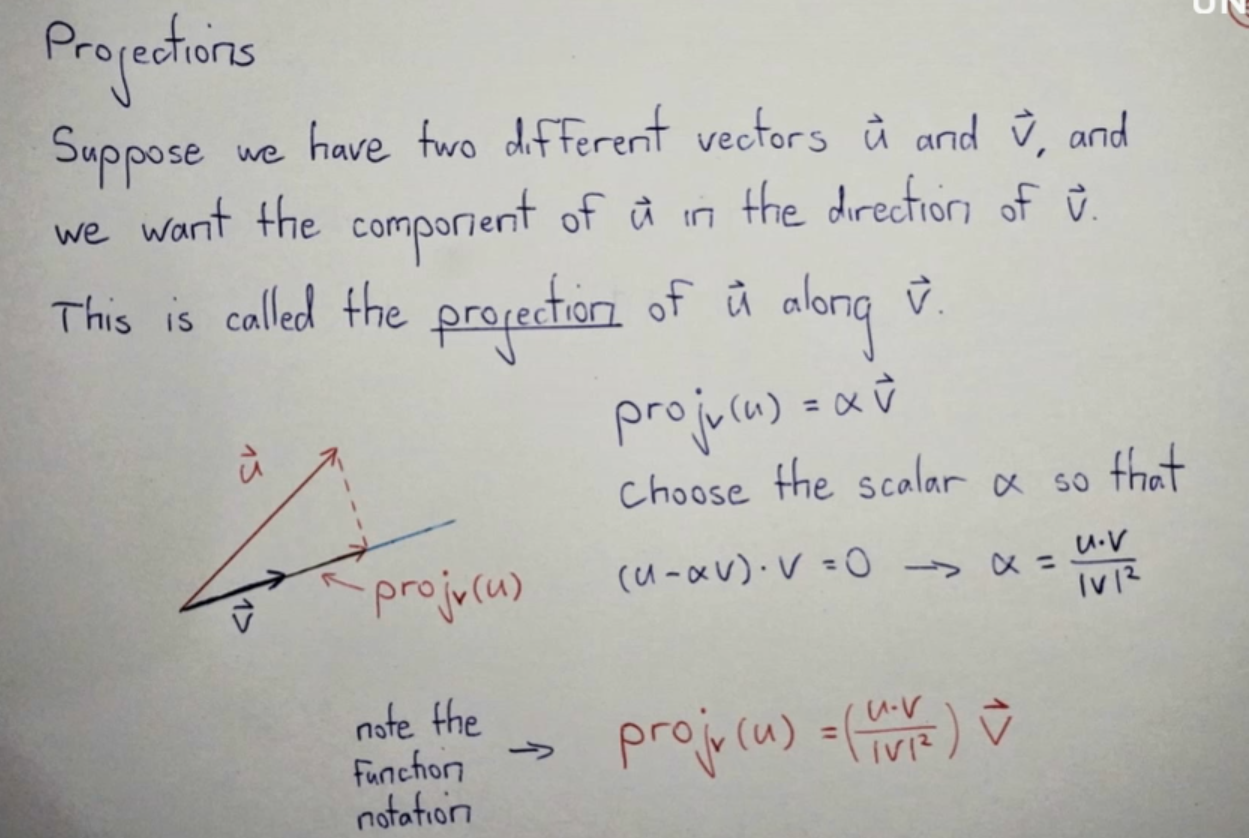 UN
Projections
Suppose we have two different vectors u⃗ and v⃗, and
we want the component of u⃗ in the direction of v⃗.
This is called the projection of u⃗ along v⃗.
projᵥ(u) = α v⃗
Choose the scalar α so that
(u - αv) · v = 0 → α = u·v / |v|²
u⃗
v⃗
projᵥ(u)
note the
function
notation
→ projᵥ(u) = (u·v / |v|²) v⃗